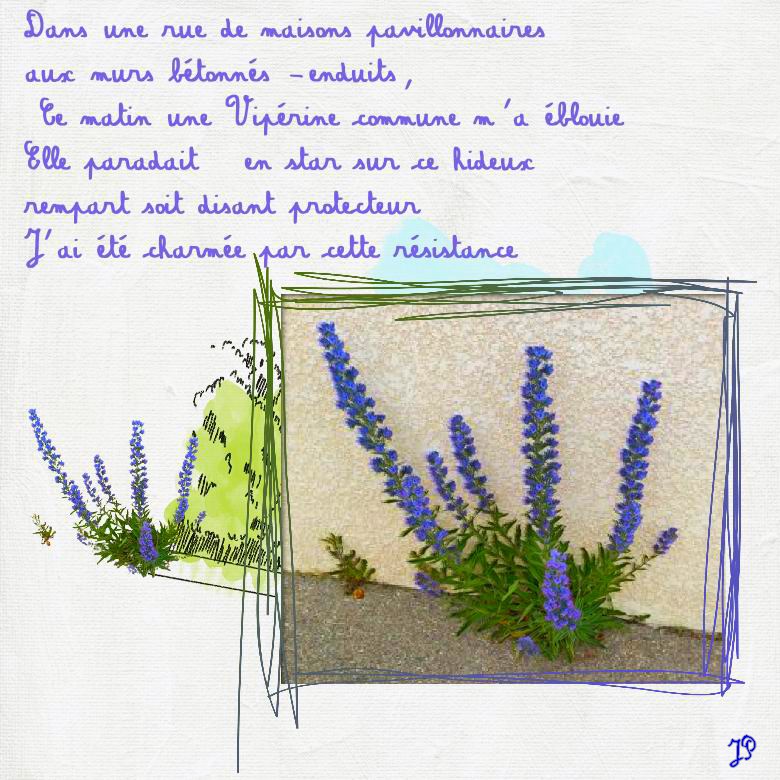 Dans une rue de maisons pavillonnaires
aux murs bétonnés - enduits,
Ce matin une Vipérine commune m'a éblouie
Elle paradait en star sur ce hideux
rempart soit disant protecteur
J'ai été charmée par cette résistance
JP